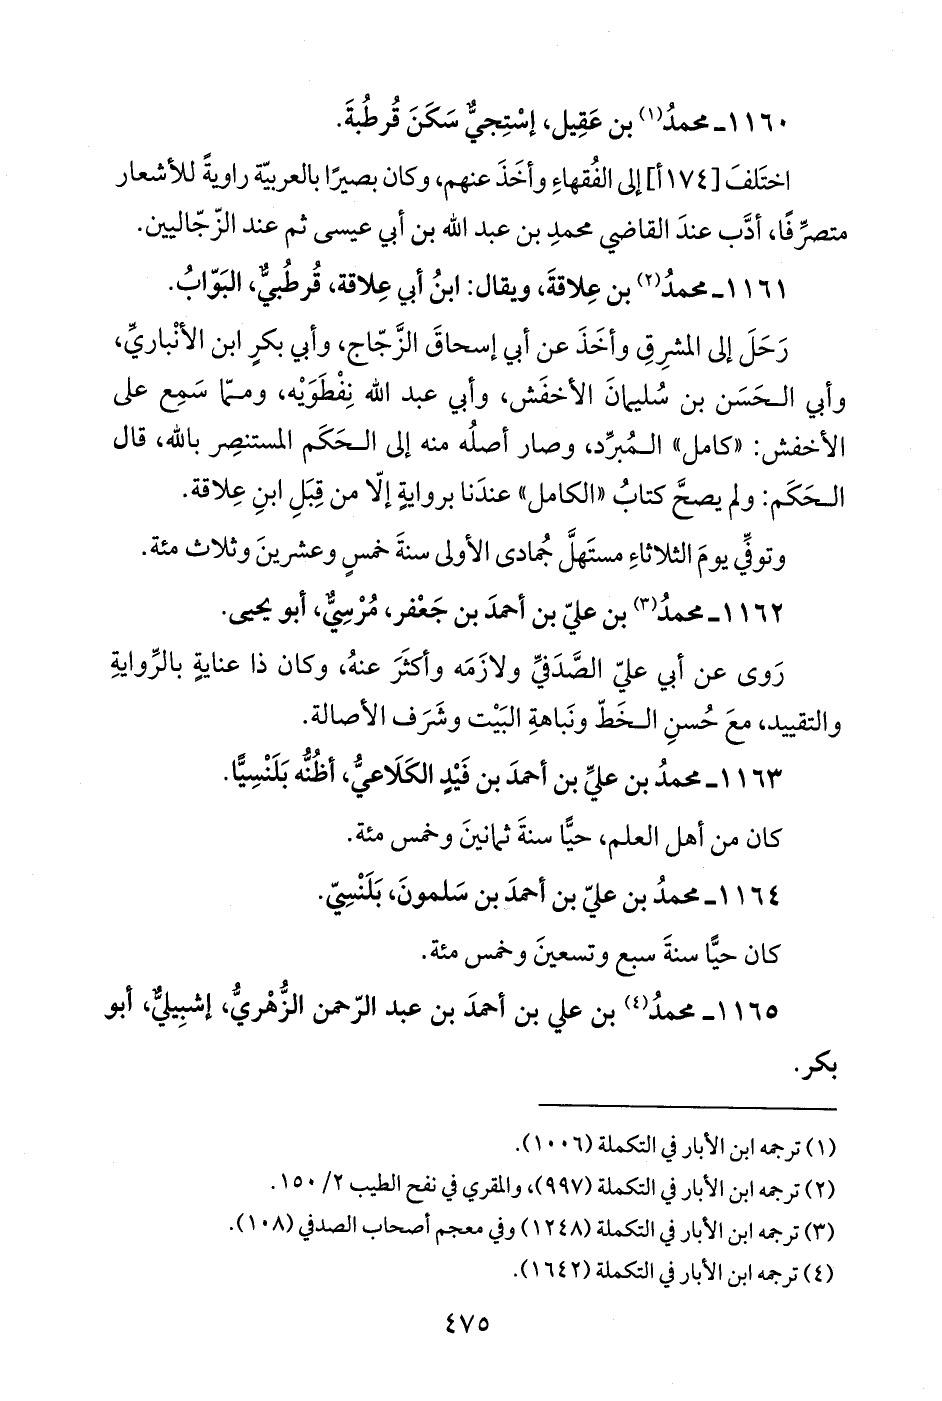 ١١٦٠ـ محمدُ(١) بن عَقِيل، إسْتِجيٌّ سَكَنَ قُرطُبةَ.
اختَلفَ [١٧٤أ] إلى الفُقهاءِ وأخَذَ عنهم، وكان بصيرًا بالعربيّة راويةً للأشعار
متصرِّفًا، أدَّب عندَ القاضي محمدِ بن عبد الله بن أبي عيسى ثم عند الزّجّاليين.
١١٦١ـ محمدُ(٢) بن عِلاقةَ، ويقال: ابنُ أبي عِلاقة، قُرطُبيٌّ، البَوّابُ.
رَحَلَ إلى المشرِقِ وأخَذَ عن أبي إسحاقَ الزَّجّاج، وأبي بكرٍ ابن الأنْباريِّ،
وأبي الـحَسَن بن سُليمانَ الأخفَش، وأبي عبد الله نِفْطَوَيْه، وممّا سَمِع على
الأخفش: «كامل» الـمُبرِّد، وصار أصلُه منه إلى الـحَكَم المستنصِر بالله، قال
الـحَكَم: ولم يصحَّ كتابُ «الكامل» عندَنا بروايةٍ إلّا من قِبَلِ ابنِ عِلاقة.
وتوفِّي يومَ الثلاثاءِ مستَهلَّ جُمادى الأولى سنةَ خمسٍ وعشرينَ وثلاث مئة.
١١٦٢ـ محمدُ(٣) بن عليّ بن أحمدَ بن جَعْفر، مُرْسِيٌّ، أبو يحيى.
رَوى عن أبي عليّ الصَّدَفيِّ ولازَمَه وأكثَرَ عنهُ، وكان ذا عنايةٍ بالرِّوايةِ
والتقييد، معَ حُسنِ الـخَطّ ونَباهةِ البَيْت وشَرَف الأصالة.
١١٦٣ـ محمدُ بن عليِّ بن أحمدَ بن فَيْدٍ الكَلَاعيُّ، أظنُّه بَلَنْسِيًّا.
كان من أهل العلم، حيًّا سنةَ ثمانينَ وخمس مئة.
١١٦٤ـ محمدُ بن عليّ بن أحمدَ بن سَلمونَ، بَلَنْسِيّ.
كان حيًّا سنةَ سبع وتسعينَ وخمس مئة.
١١٦٥ـ محمدُ(٤) بن علي بن أحمدَ بن عبد الرّحمن الزُّهْريُّ، إشبِيليٌّ، أبو
بكر.
(١) ترجمه ابن الأبار في التكملة (١٠٠٦).
(٢) ترجمه ابن الأبار في التكملة (٩٩٧)، والمقري في نفح الطيب ٢/ ١٥٠.
(٣) ترجمه ابن الأبار في التكملة (١٢٤٨) وفي معجم أصحاب الصدفي (١٠٨).
(٤) ترجمه ابن الأبار في التكملة (١٦٤٢).
٤٧٥